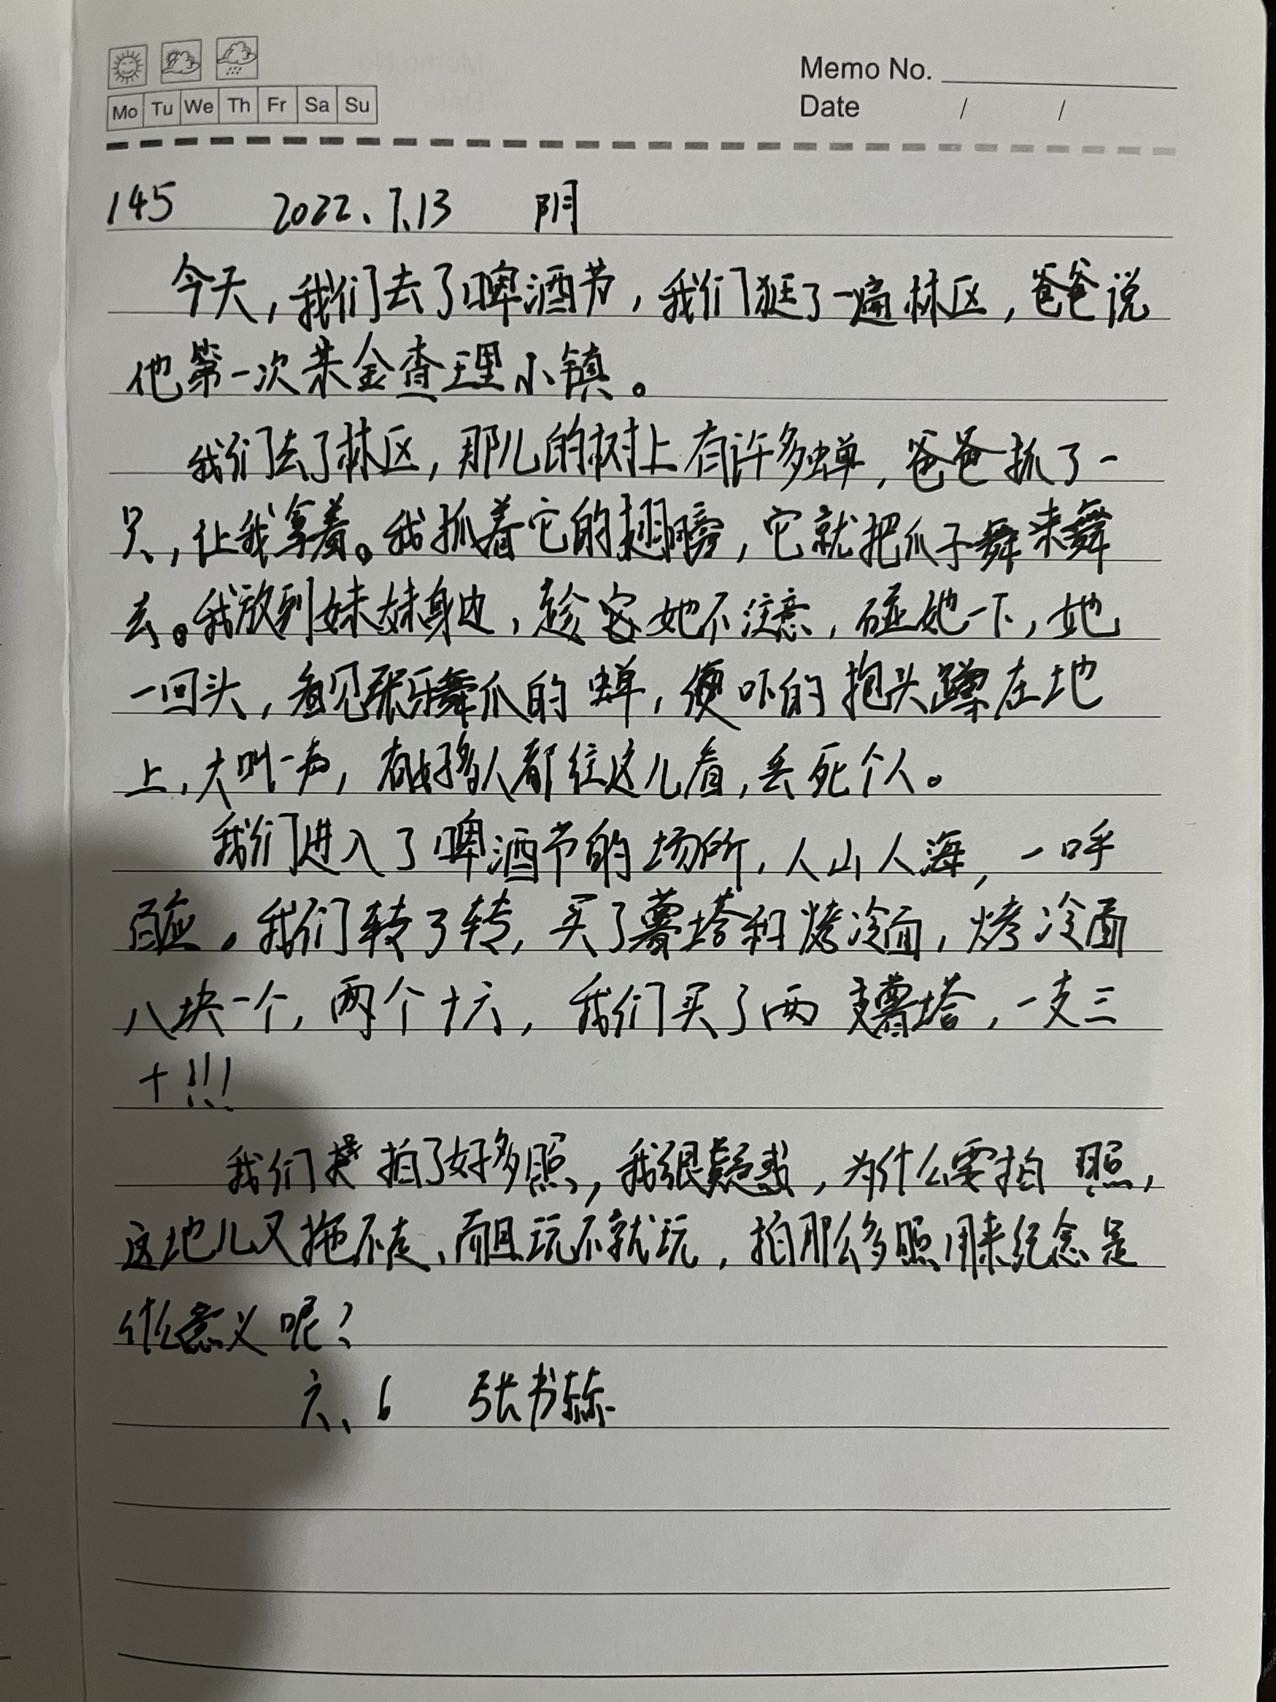 Mo Tu We Th Fr Sa Su
Memo No.
Date / /
145 2022.7.13 阴
今天，我们去了啤酒节，我们逛了一遍林区，爸爸说
他第一次来金查理小镇。
我们去了林区，那儿的树上有许多蝉，爸爸抓了一
只，让我拿着。我抓着它的翅膀，它就把爪子舞来舞
去。我放到妹妹身边，趁她不注意，碰她一下，她
一回头，看见张牙舞爪的蝉，便吓的抱头蹲在地
上，大叫一声，有好多人都往这儿看，丢死个人。
我们进入了啤酒节的场所，人山人海，一呼
百应。我们转了转，买了薯塔和烤冷面，烤冷面
八块一个，两个十六，我们买了两支薯塔，一支三
十!!!
我们拍了好多照，我很疑惑，为什么要拍照，
这地儿又拖不走、而且玩不就玩，拍那么多照用来纪念是
什么意义呢？
六、6 张书